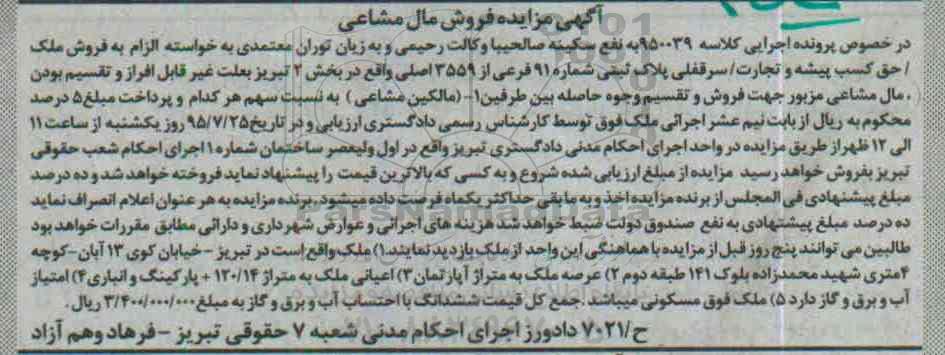 آگهی مزایده فروش مال مشاعی
در خصوص پرونده اجرایی کلاسه ۹۵۰۰۳۹ به نفع سکینه صالحیبا وکالت رحیمی و به زیان توران معتمدی به خواسته الزام به فروش ملک
/ حق کسب پیشه و تجارت/ سرقفلی پلاک ثبتی شماره ۹۱ فرعی از ۳۵۵۹ اصلی واقع در بخش ۲ تبریز بعلت غیر قابل افراز و تقسیم بودن
، مال مشاعی مزبور جهت فروش و تقسیم وجوه حاصله بین طرفین۱- (مالکین مشاعی ) به نسبت سهم هر کدام و پرداخت مبلغ۵ درصد
محکوم به ریال از بابت نیم عشر اجرائی ملک فوق توسط کارشناس رسمی دادگستری ارزیابی و در تاریخ۹۵/۷/۲۵ روز یکشنبه از ساعت ۱۱
الی ۱۲ ظهر از طریق مزایده در واحد اجرای احکام مدنی دادگستری تبریز واقع در اول ولیعصر ساختمان شماره ۱ اجرای احکام شعب حقوقی
تبریز بفروش خواهد رسید مزایده از مبلغ ارزیابی شده شروع و به کسی که بالاترین قیمت را پیشنهاد نماید فروخته خواهد شد و ده درصد
مبلغ پیشنهادی فی المجلس از برنده مزایده اخذ و به مابقی حداکثر یکماه فرصت داده میشود. برنده مزایده به هر عنوان اعلام انصراف نماید
ده درصد مبلغ پیشنهادی به نفع صندوق دولت ضبط خواهد شد هزینه های اجرائی و عوارض شهرداری و دارائی مطابق مقررات خواهد بود
طالبین می توانند پنج روز قبل از مزایده با هماهنگی این واحد از ملک بازدید نمایند.۱) ملک واقع است در تبریز - خیابان کوی ۱۳ آبان-کوچه
۴متری شهید محمدزاده بلوک ۱۴۱ طبقه دوم ۲) عرصه ملک به متراژ آپارتمان ۳) اعیانی ملک به متراژ ۱۲۰/۱۴ + پارکینگ و انباری ۴) امتیاز
آب و برق و گاز دارد ۵) ملک فوق مسکونی میباشد .جمع کل قیمت ششدانگ با احتساب آب و برق و گاز به مبلغ ۳/۴۰۰/۰۰۰/۰۰۰ ریال .
ح/۷۰۲۱ دادورز اجرای احکام مدنی شعبه ۷ حقوقی تبریز - فرهاد وهم آزاد
ParsNamadData